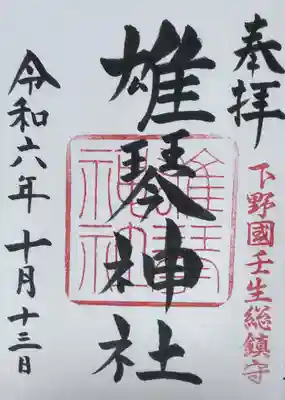 奉拝
下野國壬生総鎮守
雄琴神社
令和六年十月十三日